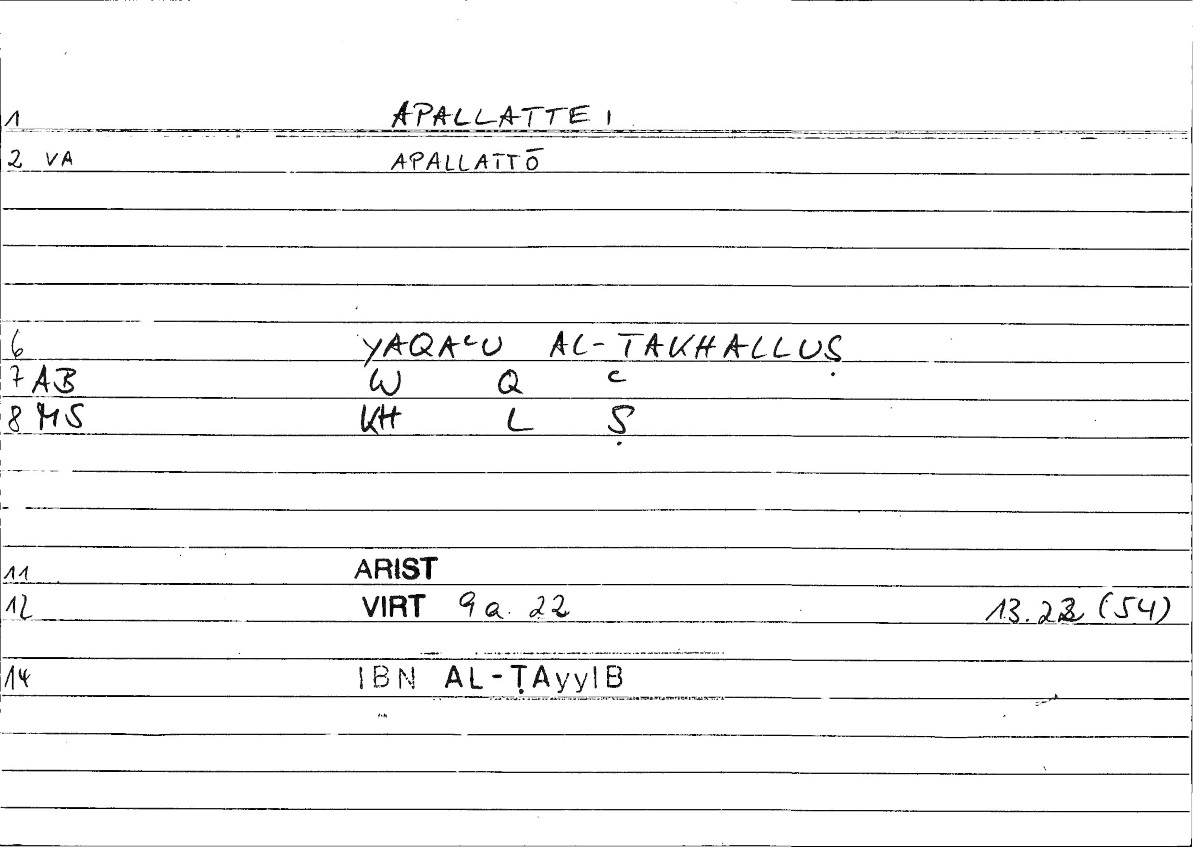 1 APALLATTEI
2 VA APALLATTŌ
6 YAQAʿU AL-TAKHALLUṢ
7 AB W Q ʿ
8 MS KH L Ṣ
11 ARIST
12 VIRT 9a. 22 13.22 (54)
14 IBN AL-ṬAyyIB